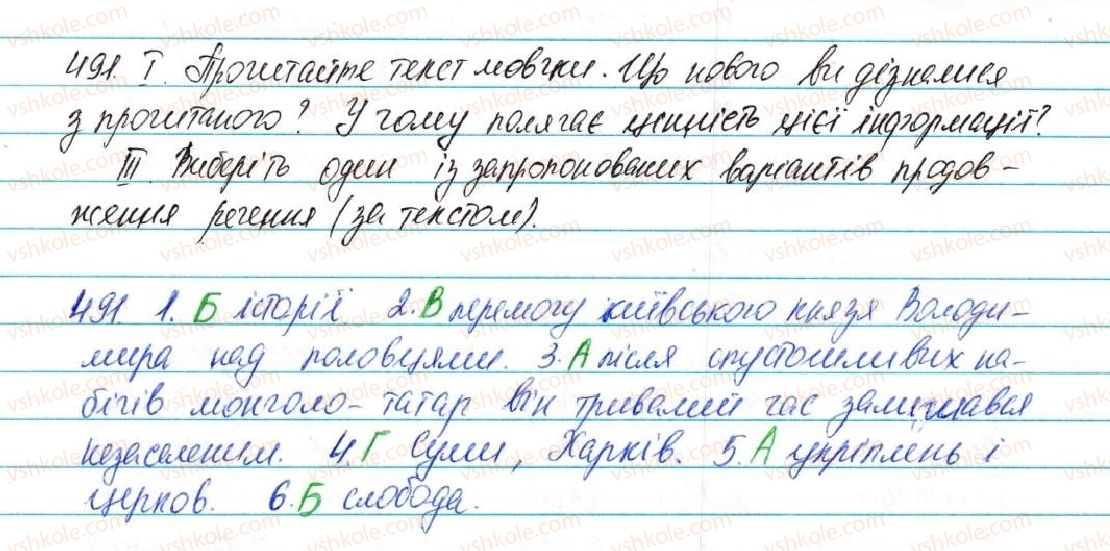 491. I. Прочитайте текст мовчки. Що нового ви дізналися
з прочитаного? У чому полягає цінність цієї інформації?
III. Виберіть один із запропонованих варіантів продов-
ження речення (за текстом).
491. 1. Б історії 2. В перемогу київського князя Володи-
мира над половцями. 3. А після спустошливих на-
бігів монголо-татар він тривалий час залишався
незаселеним. 4. Г Суми, Харків. 5. А укріплень і
церков. 6. Б слобода.